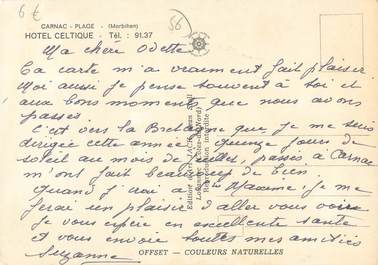 6 €
56
CARNAC - PLAGE - (Morbihan)
HOTEL CELTIQUE - Tél. : 91.37
Ma chère Odette
Ta carte m'a vraiment fait plaisir
Moi aussi je pense souvent à toi et
aux bons moments que nous avons
passés
C'est vers la Bretagne que je me suis
dirigée cette année. quinze jours de
soleil au mois de Juillet, passés à Carnac
m'ont fait beaucoup de bien
Quand j'irai à Ste Maxime, je me
ferai un plaisir d'aller vous voir
Je vous espère en excellente santé
et vous envoie toutes mes amitiés
Suzanne
OFFSET — COULEURS NATURELLES
Reproduction interdite